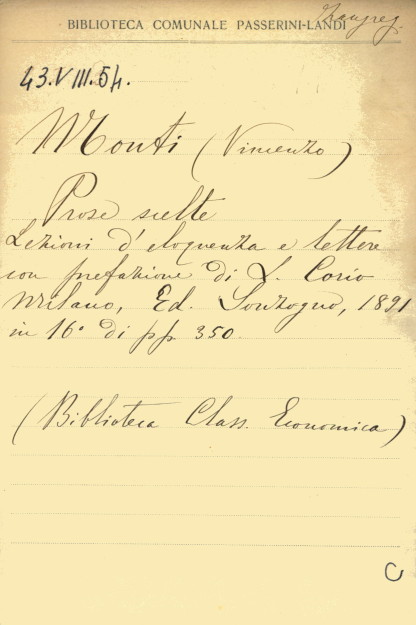 BIBLIOTECA COMUNALE PASSERINI-LANDI
43.VIII.54.
Monti (Vincenzo)
Prose scelte
Lezioni d'eloquenza e lettere
con prefazione di L. Corio
Milano, Ed. Sonzogno, 1891
in 16° di pp. 350.
(Biblioteca Class. Economica)
C